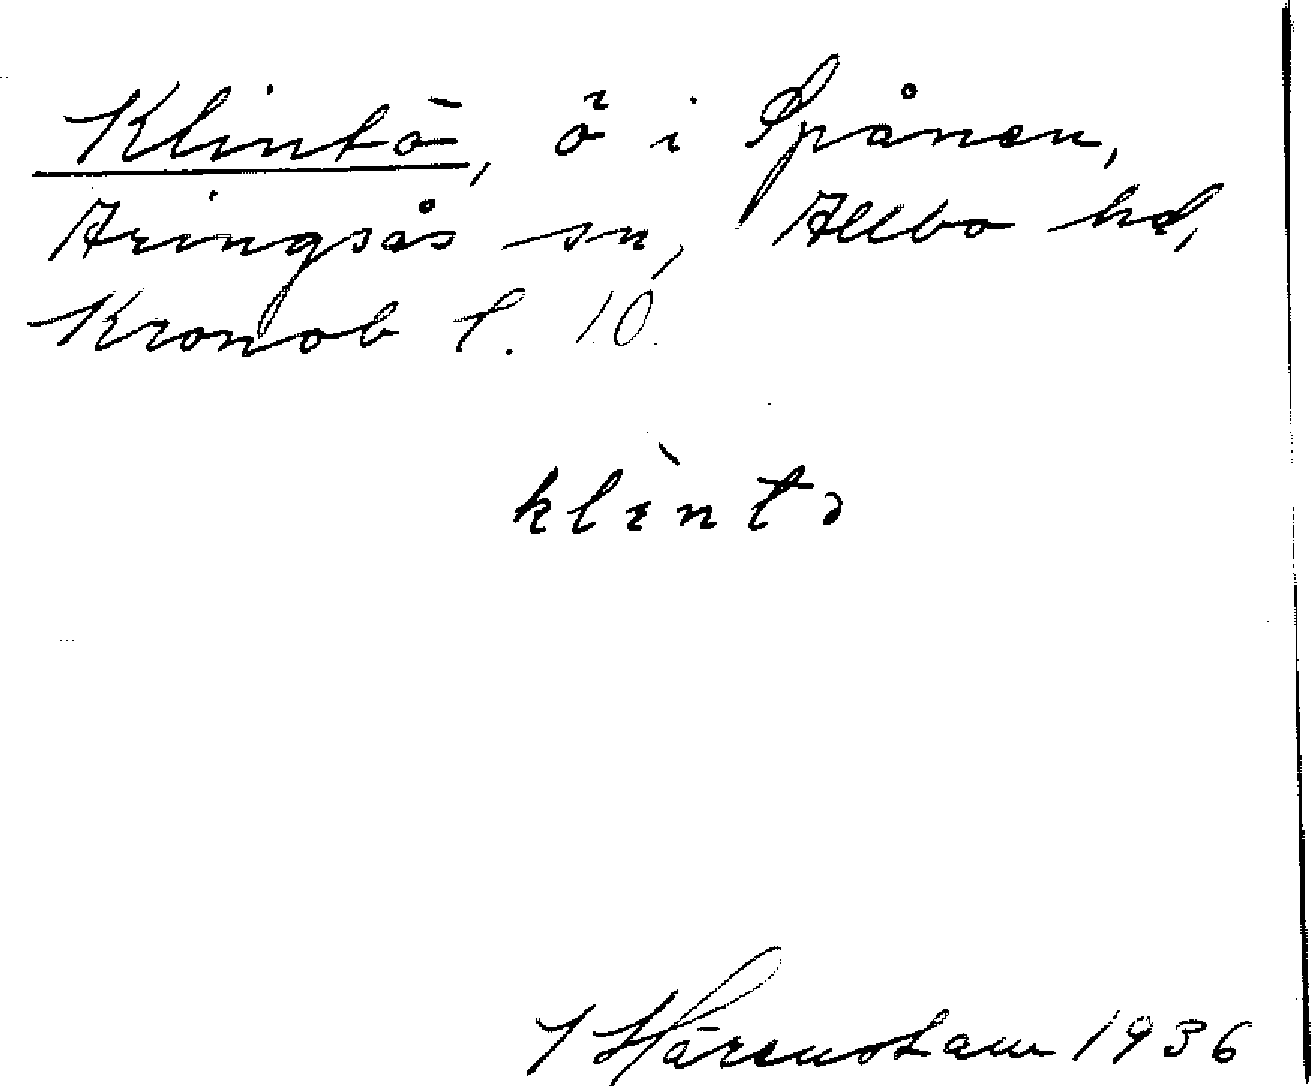 Klintö, ö i Spånen,
Aringsås sn, Allbo hd,
Kronob l. 10.
klìntə
I Härenstam 1936